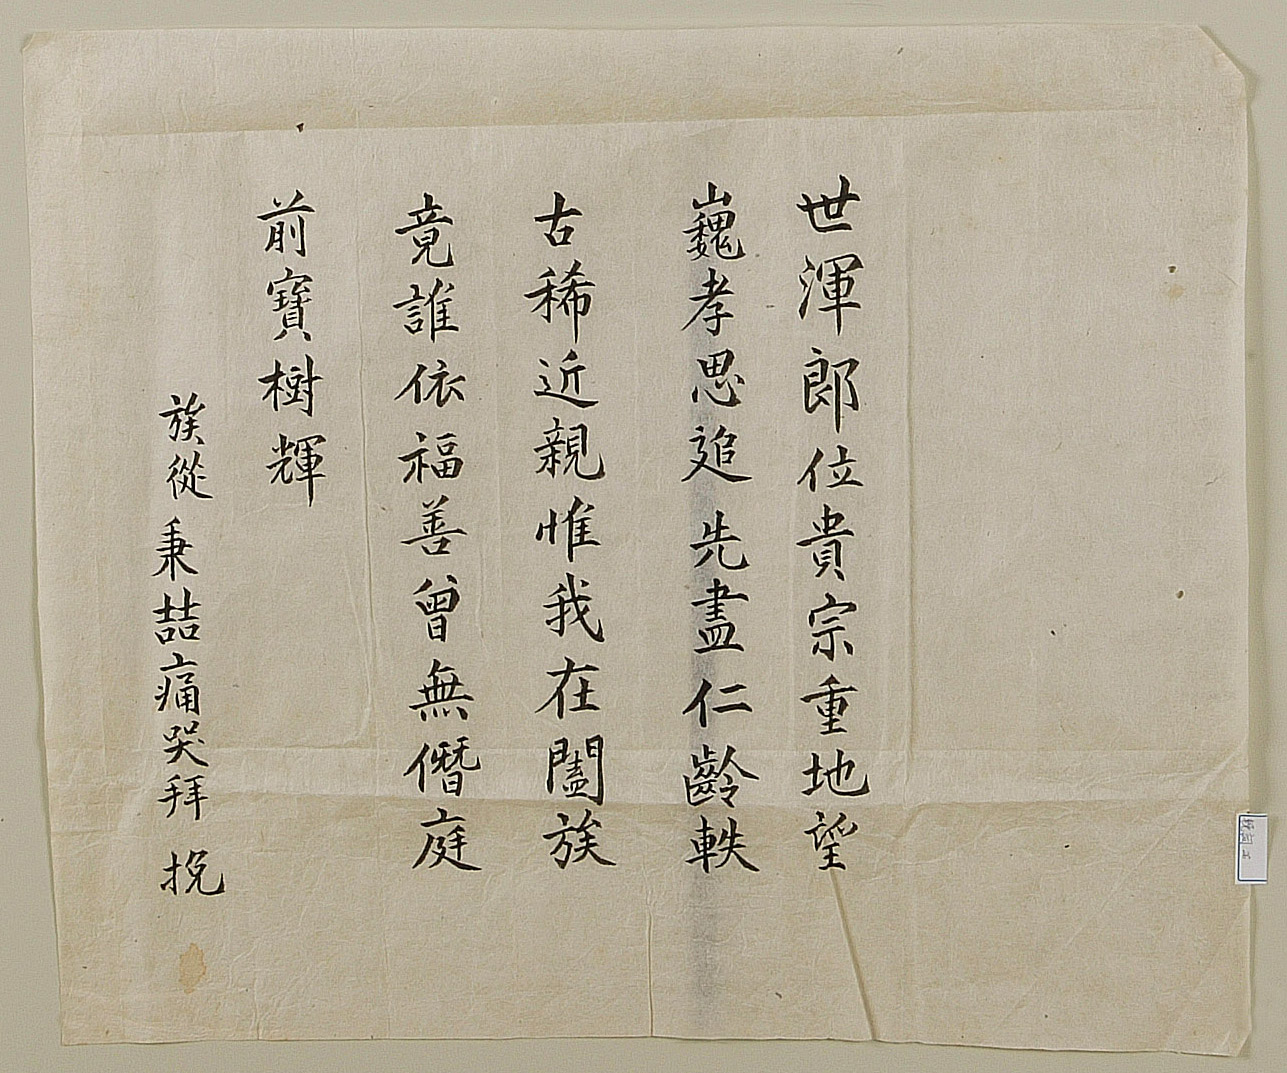 世渾郎位貴宗重地望
巍孝思追先盡仁齡軼
古稀近親惟我在闔族
竟誰依福善曾無僭庭
前寶樹輝
族從秉喆痛哭拜挽